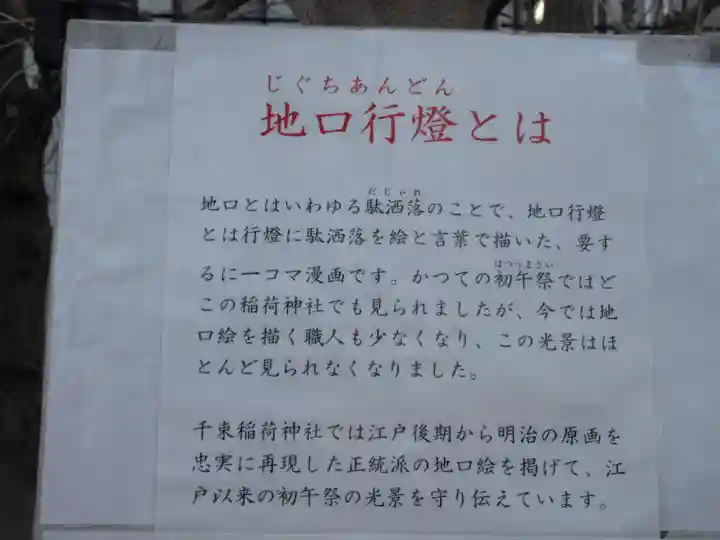 じぐちあんどん
地口行燈とは
だじゃれ
地口とはいわゆる駄洒落のことで、地口行燈
とは行燈に駄洒落を絵と言葉で描いた、要す
はつうまさい
るに一コマ漫画です。かつての初午祭ではど
この稲荷神社でも見られましたが、今では地
口絵を描く職人も少なくなり、この光景はほ
とんど見られなくなりました。
千束稲荷神社では江戸後期から明治の原画を
忠実に再現した正統派の地口絵を掲げて、江
戸以来の初午祭の光景を守り伝えています。